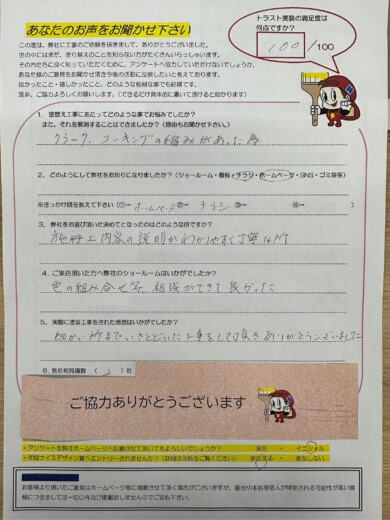 あなたのお声をお聞かせ下さい
トラスト美装の満足度は
何点ですか?
100 /100
この度は、弊社に工事のご依頼を頂きまして、ありがとうございました。
世の中にはまだ、塗り替えのことを知らない方がたくさんいらっしゃいます。
その方たちに良く知っていただくために、アンケートへ協力していただけないでしょうか。
あな様のご意見をお聞かせ頂き今後の活動に反映したいと考えております。
良かったこと・嬉しかったこと、どのような些細な事でも結構です。
是非、ご協力よろしくお願いします。(できるだけ具体的に書いて頂けると助かります)
1. 塗替え工事にあたってどのような事でお悩みでしたか?
また、それを解消することはできましたか?(理由もお聞かせ下さい。)
クラック、コーキングの縮みがあった為
2. どのようにして弊社をお知りになりましたか?(ショールーム・看板・チラシ・ホームページ・SNS・ゴミ袋等)
※きっかけ順を教えて下さい(①→ ホームページ ②→ チラシ ③→ ④→ )
3. 弊社をお選び頂いた決めてとなったのはどのような所ですか?
施工内容の説明がわかりやすく丁寧な所
4. ご来店頂いた方へ弊社のショールームはいかがでしたか?
色の組み合せ等、相談ができて良かった
5. 実際に塗装工事をされた感想はいかがでしたか?
細かい所までいきとどいた工事をして頂き ありがとうございました
6. 他社相見積数 ( 2 )社
ご協力ありがとうございます
・アンケートを弊社ホームページへ記載させて頂いてもよろしいでしょうか? 実名 ・ イニシャル
・年間ナイスデザイン賞へエントリーされませんか?(詳細は別紙をご覧ください) 参加する ・ 参加しない
お客様より頂いたご意見はホームページ等に掲載させて頂く場合がございますが、番地や本名等個人が特定される可能性が高い情
報につきましては一切公共及び掲載はしませんのでご安心下さい。